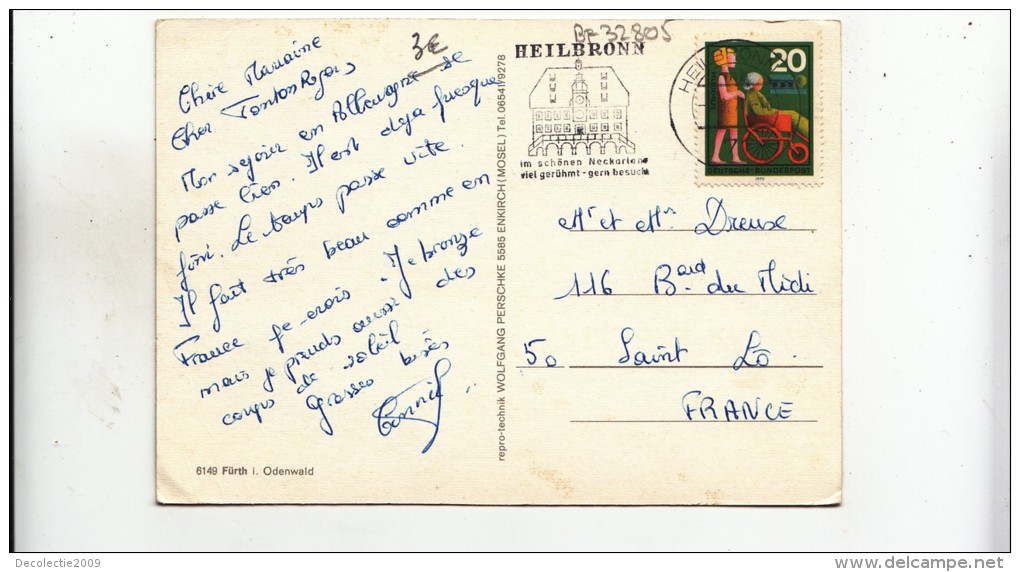 BF 32805
3€
Chère Marraine
Cher Tonton Roger,
Mon séjour en Allemagne se
passe bien. Il est déja presque
fini. Le temps passe vite.
Il fait très beau comme en
France je crois. Je bronze
mais je prends aussi des
coups de soleil
Grosses bises
HEILBRONN
im schönen Neckarland
viel gerühmt - gern besucht
HEILBRONN
20
DEUTSCHE BUNDESPOST
repro-technik WOLFGANG PERSCHKE 5585 ENKIRCH (MOSEL) Tel. 06541/9278
Mr et Mme Dreuse
116 Bard du Midi
50 Saint Lô.
FRANCE
6149 Fürth i. Odenwald
Decolectie2009
www.delcampe.net